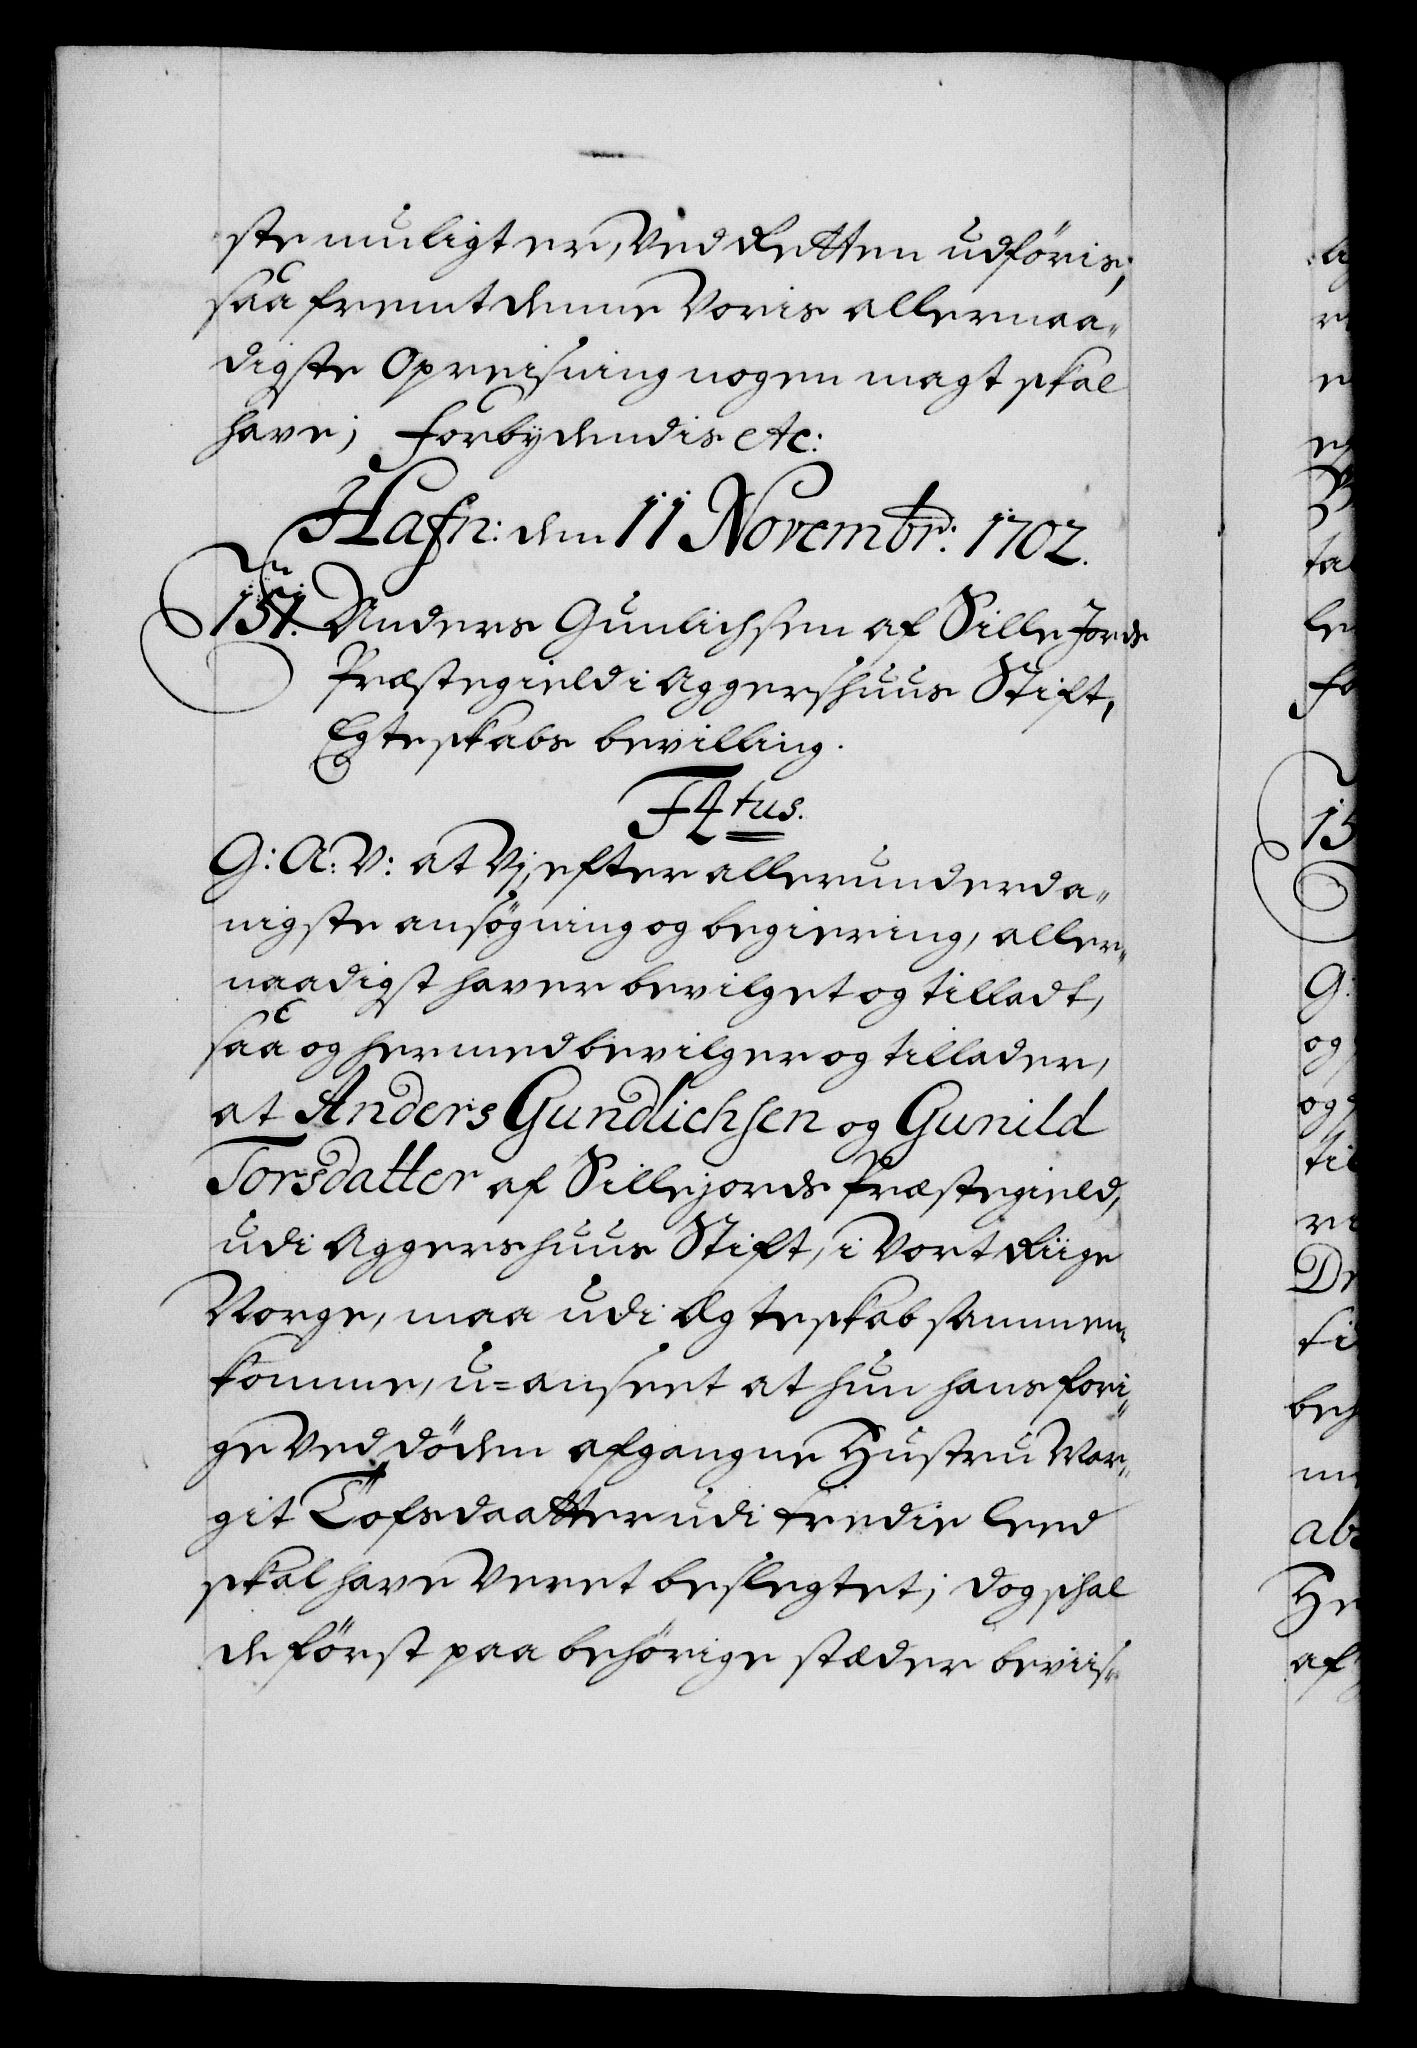 ste muligt er, Ved Retten udføris;
saa fremt denne Voris allernaa-
digste Opreisning nogen magt skal
have; Forbydendis etc:
Hafn: den 11 Novembr: 1702.
151. Anders Gunlichsen af Sille Jords
Præstegield i Aggershuus Stift,
Egteskabs bevilling.
F4tus.
G: A: V: at Vj, efter allerunderda-
nigste ansøgning og begiering, aller-
naadigst haver bevilget og tilladt,
saa og hermed bevilger og tillader,
at Anders Gundlichsen og Gunild
Torsdatter af Sillejords Præstegield,
udi Aggershuus Stift, i Vort Riige
Norge, maa udi Egteskab sammen-
komme, u=anseet at hun hans fori-
ge Ved døden afgangne Hustru Mar-
git Tofsdaatter udi tredie Leed
skal have Veret beslegtet; dog schal
de først paa behørige stæder beviis-